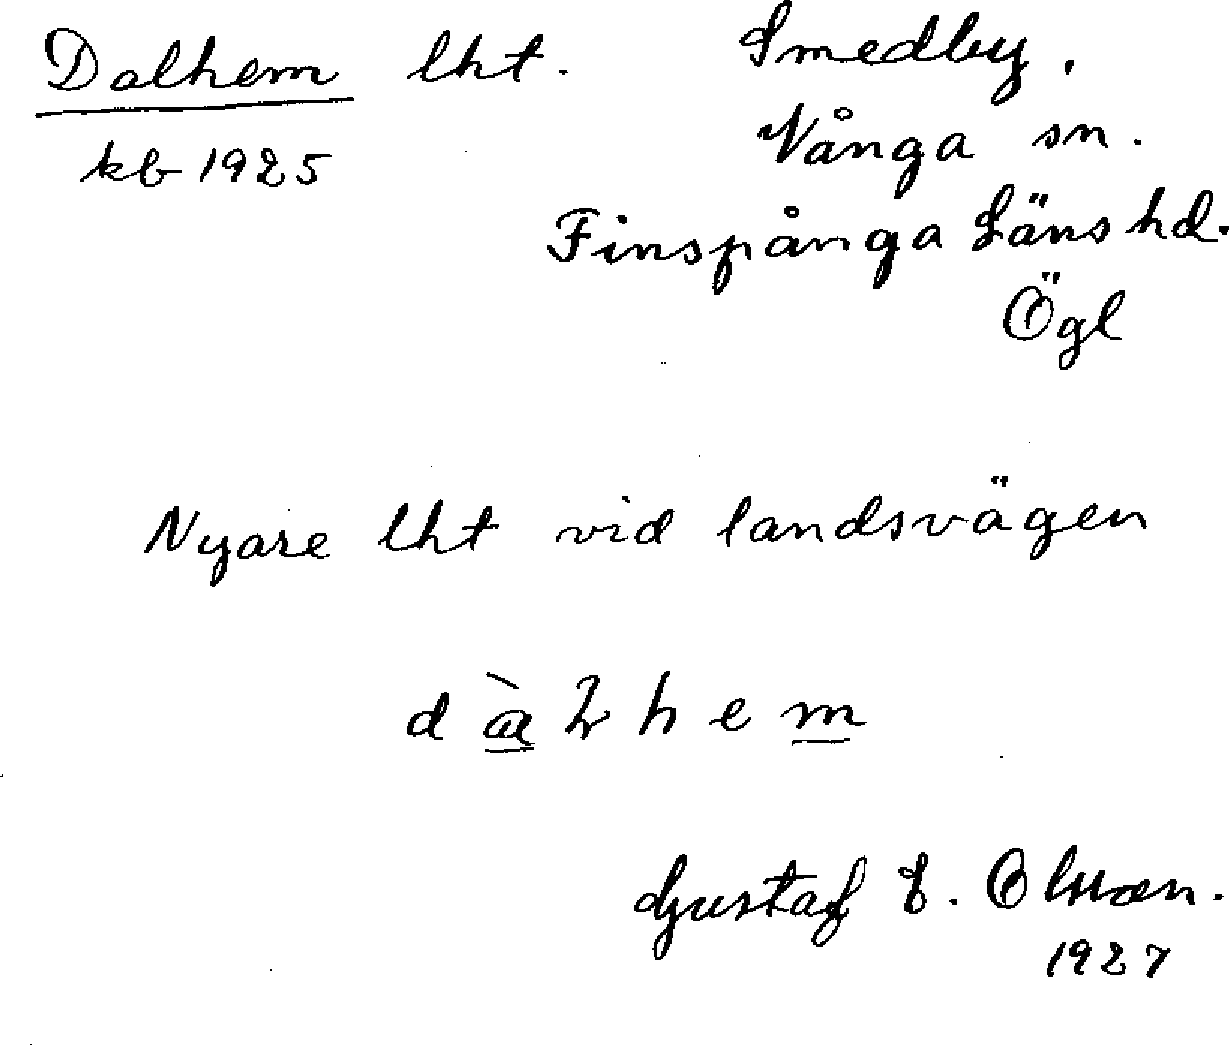 Dalhem lht. Smedby.
kb 1925 Vånga sn.
Finspånga Läns hd.
Ögl
Nyare lht vid landsvägen
d à l h e m
Gustaf E. Olsson.
1927